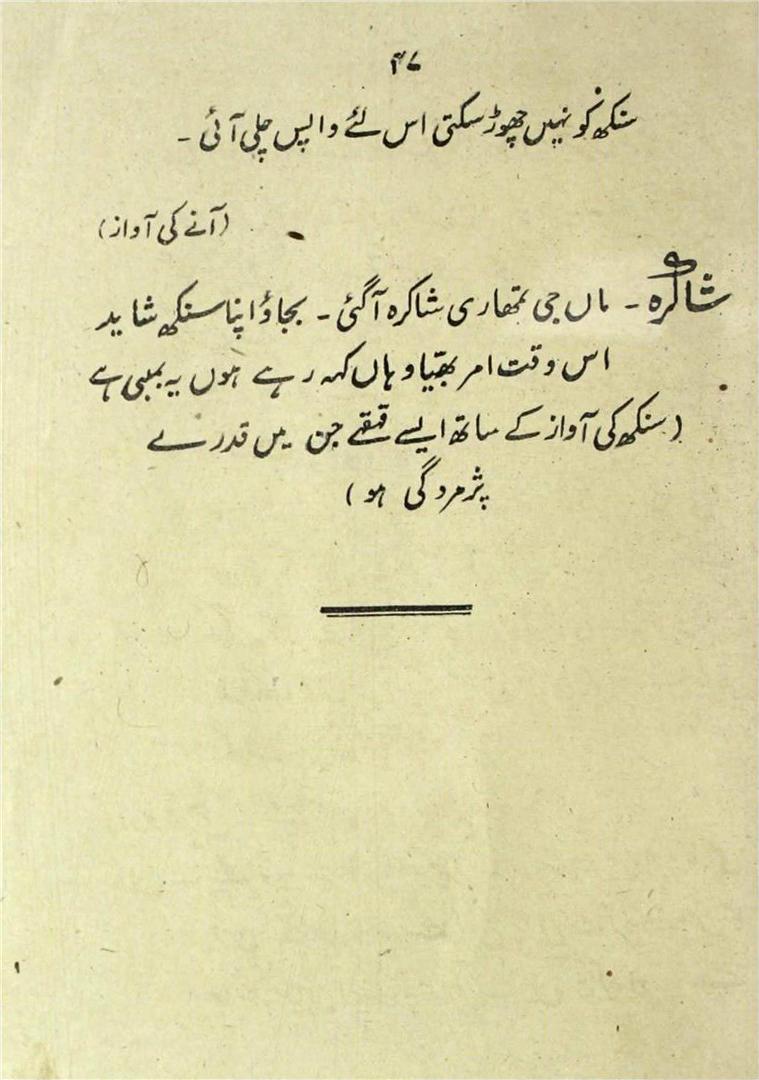 ۴۷
سنکھ کو نہیں چھوڑ سکتی اس لئے واپس چلی آئی ۔
(آنے کی آواز)
شاکرہ ۔ ماں جی تمھاری شاکرہ آگئی ۔ بجاؤ اپنا سنکھ شاید
اس وقت امر بھیّا وہاں کہہ رہے ہوں یہ بمبئی ہے
(سنکھ کی آواز کے ساتھ ایسے قہقہے جن میں قدرے
پژمردگی ہو)